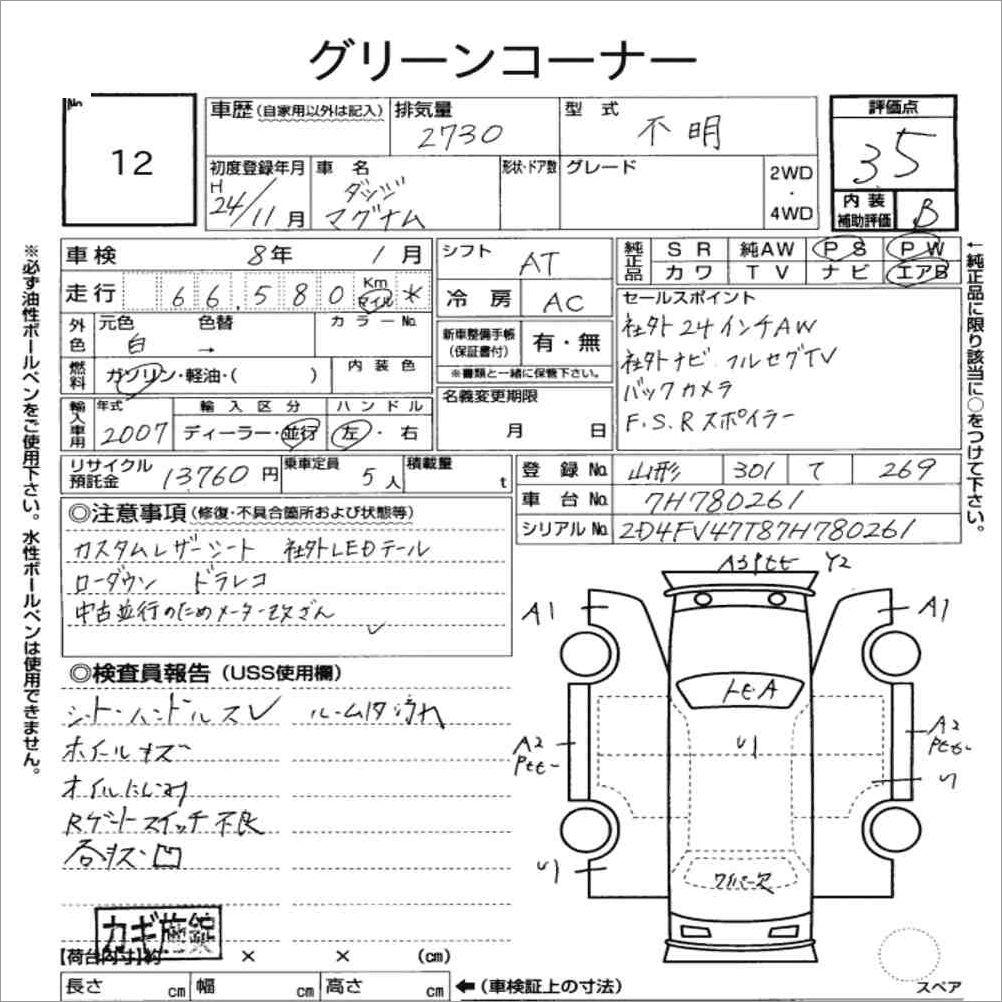 グリーンコーナー
No.
12
車歴 (自家用以外は記入)
排気量
2730
型 式
不明
評価点
3.5
初度登録年月
H 24/11月
車 名
ダッジ
マグナム
形状・ドア数
グレード
2WD
・
4WD
内装
補助評価
B
※必ず油性ボールペンをご使用下さい。水性ボールペンは使用できません。
車検 8年 1月
シフト AT
純正品
SR 純AW PS PW
カワ TV ナビ エアB
←純正品に限り該当に○をつけて下さい。
走行 66,580 Km マイル *
冷房 AC
セールスポイント
社外24インチAW
社外ナビ フルセグTV
バックカメラ
F.S.Rスポイラー
外色
元色 色替
白 →
カラーNo.
新車整備手帳
(保証書付)
有・無
※書類と一緒に保管下さい。
燃料
ガソリン・軽油・( )
内装色
名義変更期限
月 日
輸入車用
年式
2007
輸入区分
ディーラー・並行
ハンドル
左・右
リサイクル
預託金
13760円
乗車定員
5人
積載量
t
登録No. 山形 301 て 269
車台No. 7H780261
シリアルNo. 2D4FV47T87H780261
◎注意事項 (修復・不具合箇所および状態等)
カスタムレザーシート 社外LEDテール
ローダウン ドラレコ
中古並行のためメーター改ざん
◎検査員報告 (USS使用欄)
シート・ハンドルスレ ルーム内汚れ
ホイールキズ
オイルにじみ
Rゲートスイッチ不良
各キズ・凹
A3 Ptt Y2
A1
A1
トビA
U1
A2
Ptt-
A2
Ptt-
U1
U1
ワイパー欠
【荷台内寸】約 × × (cm)
長さ cm
幅 cm
高さ cm
←(車検証上の寸法)
スペア